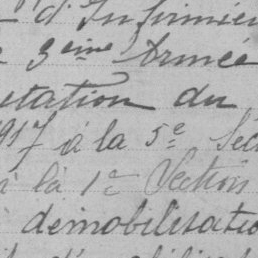 d'Infirmier
3ème Armée
tation du
917 à la 5e Sec
à la 1re Section
démobilisatio